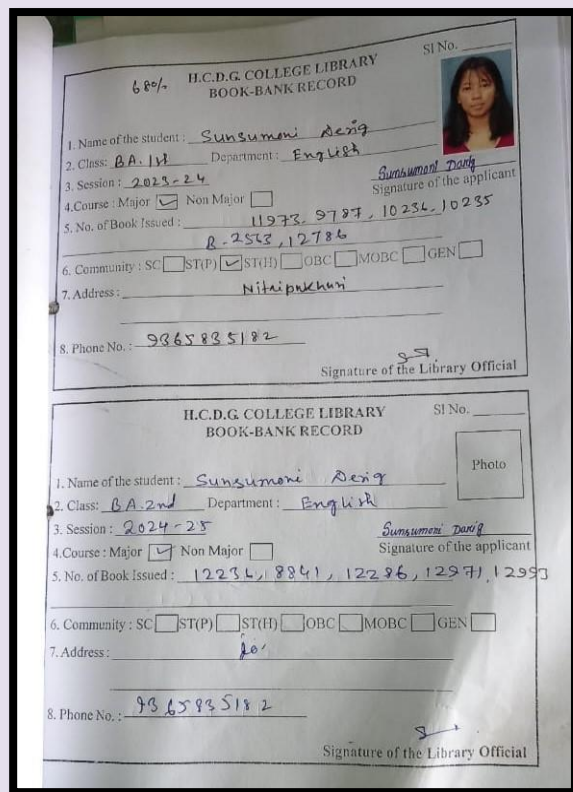 Sl No.
68%
H.C.D.G. COLLEGE LIBRARY
BOOK-BANK RECORD
1. Name of the student : Sunsumoni Derig
2. Class: B.A. 1st Department : English
3. Session : 2023-24
Sunsumoni Darig
4.Course : Major ☑ Non Major ☐ Signature of the applicant
5. No. of Book Issued : 11973, 9787, 10236, 10235
B-2563, 12786
6. Community : SC ☐ ST(P) ☑ ST(H) ☐ OBC ☐ MOBC ☐ GEN ☐
7. Address : Nitaipukhuri
8. Phone No. : 9365835182
Signature of the Library Official
H.C.D.G COLLEGE LIBRARY Sl No.
BOOK-BANK RECORD
Photo
1. Name of the student : Sunsumoni Derig
2. Class: B.A. 2nd Department : English
3. Session : 2024-25 Sunsumoni Darig
4.Course : Major ☑ Non Major ☐ Signature of the applicant
5. No. of Book Issued : 12234, 8841, 12286, 12971, 12993
6. Community : SC ☐ ST(P) ☐ ST(H) ☐ OBC ☐ MOBC ☐ GEN ☐
7. Address :
8. Phone No. : 9365835182
Signature of the Library Official